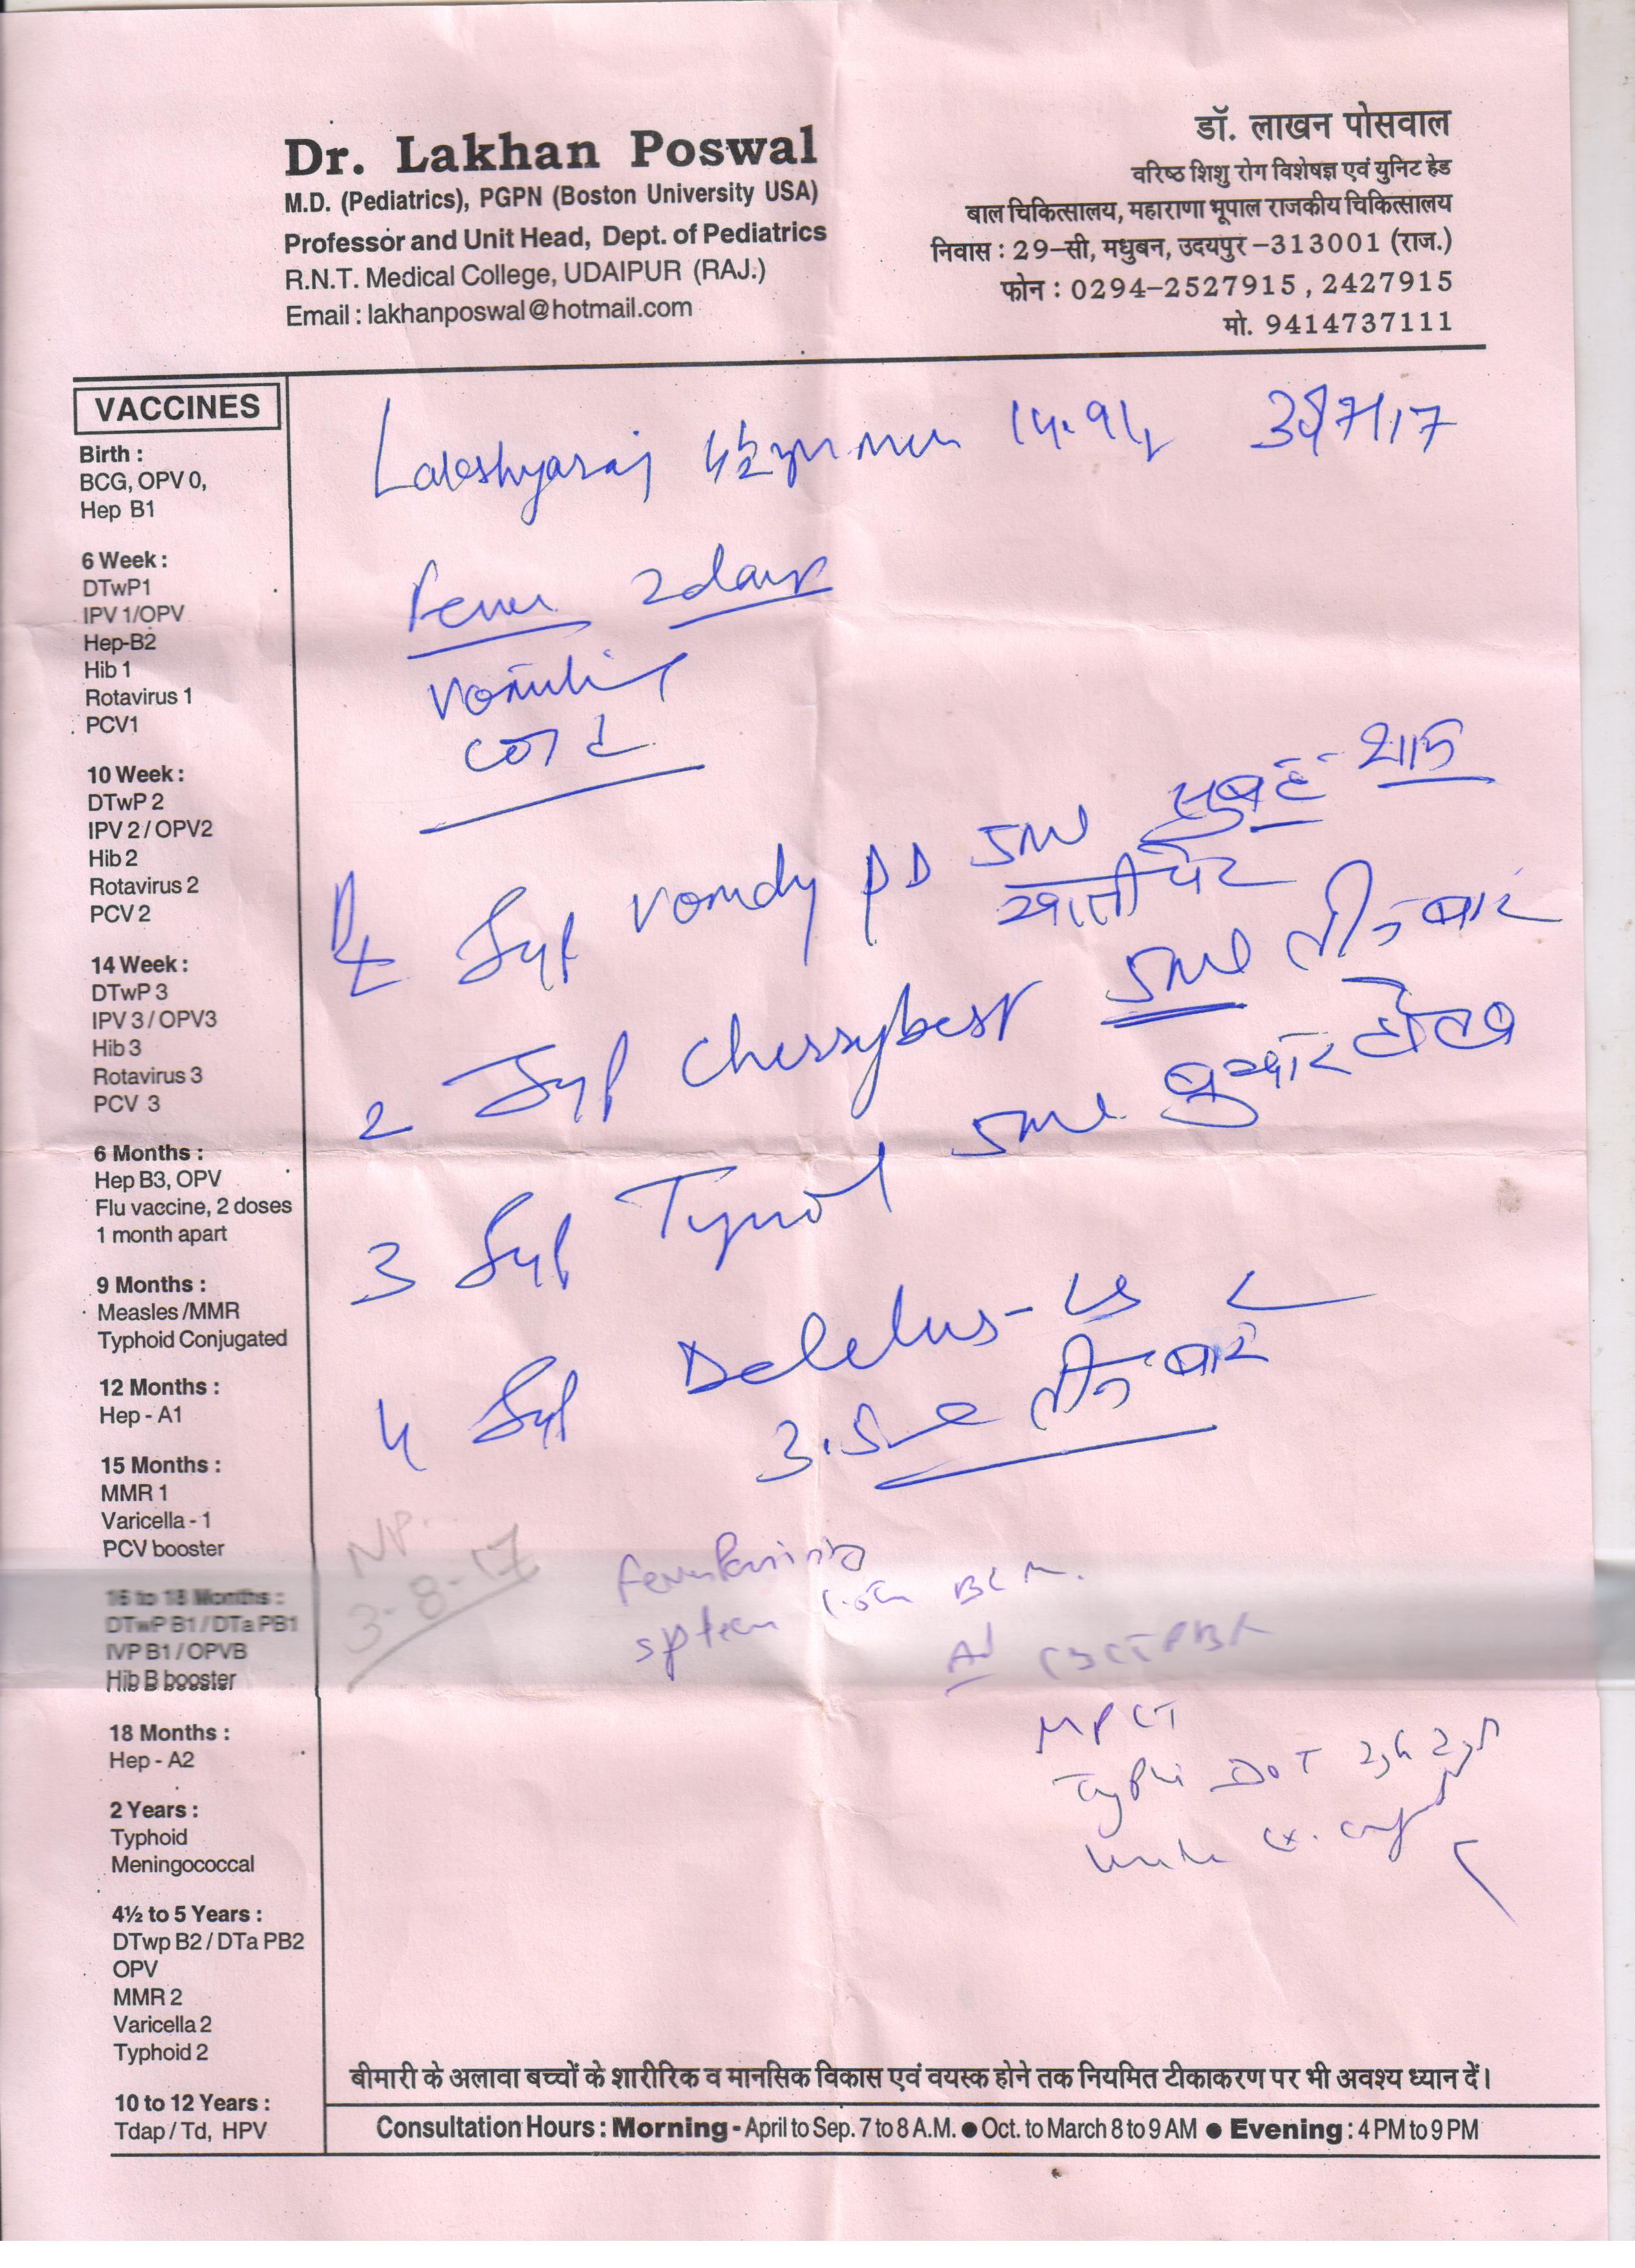 Dr. Lakhan Poswal
M.D. (Pediatrics), PGPN (Boston University USA)
Professor and Unit Head, Dept. of Pediatrics
R.N.T. Medical College, UDAIPUR (RAJ.)
Email : lakhanposwal@hotmail.com
डॉ. लाखन पोसवाल
वरिष्ठ शिशु रोग विशेषज्ञ एवं युनिट हेड
बाल चिकित्सालय, महाराणा भूपाल राजकीय चिकित्सालय
निवास : 29-सी, मधुबन, उदयपुर -313001 (राज.)
फोन : 0294-2527915 , 2427915
मो. 9414737111
VACCINES
Birth :
BCG, OPV 0,
Hep B1
6 Week :
DTwP1
IPV 1/OPV
Hep-B2
Hib 1
Rotavirus 1
PCV1
10 Week :
DTwP 2
IPV 2 / OPV2
Hib 2
Rotavirus 2
PCV 2
14 Week :
DTwP 3
IPV 3 / OPV3
Hib 3
Rotavirus 3
PCV 3
6 Months :
Hep B3, OPV
Flu vaccine, 2 doses
1 month apart
9 Months :
Measles /MMR
Typhoid Conjugated
12 Months :
Hep - A1
15 Months :
MMR 1
Varicella - 1
PCV booster
16 to 18 Months :
DTwP B1 / DTa PB1
IVP B1 / OPVB
Hib B booster
18 Months :
Hep - A2
2 Years :
Typhoid
Meningococcal
4½ to 5 Years :
DTwp B2 / DTa PB2
OPV
MMR 2
Varicella 2
Typhoid 2
10 to 12 Years :
Tdap / Td, HPV
Lakshyaraj
Fever 2 days
Vomiting
Cold
Syp Vomdy PD 5ml सुबह शाम
खाली पेट
2 Syp Cherrybest 5ml तीन बार
3 Syp 5ml बुखार हो तब
4 Syp
3.5ml तीन बार
NP.
3-8-17
spleen
Ad
MPCT
Typhi DOT
बीमारी के अलावा बच्चों के शारीरिक व मानसिक विकास एवं वयस्क होने तक नियमित टीकाकरण पर भी अवश्य ध्यान दें।
Consultation Hours : Morning - April to Sep. 7 to 8 A.M. ● Oct. to March 8 to 9 AM ● Evening : 4 PM to 9 PM